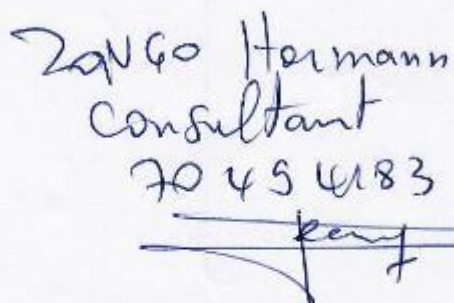 ZoNGo Hermann
Consultant
70 45 4183